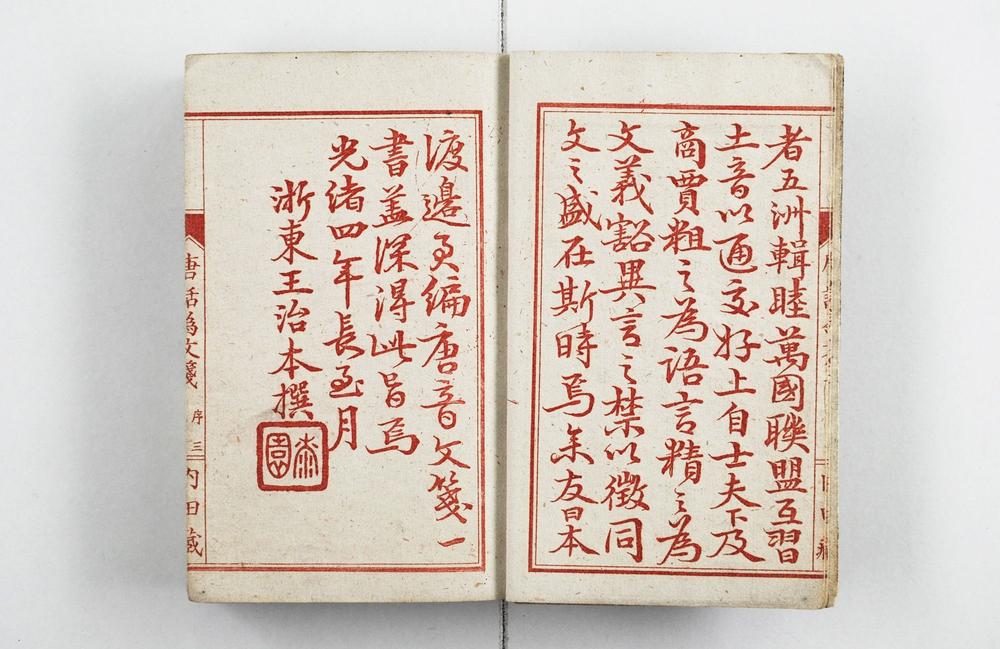 者五洲輯睦萬國聯盟互習
土音以通交好上自士夫下及
商賈粗之為語言精之為
文義豁異言之禁以徵同
文之盛在斯時焉余友日本
渡邉君編唐音文箋一
書蓋深得此旨焉
光緒四年長至月
浙東王治本撰
桼園
唐話為文箋
序
三
內田藏